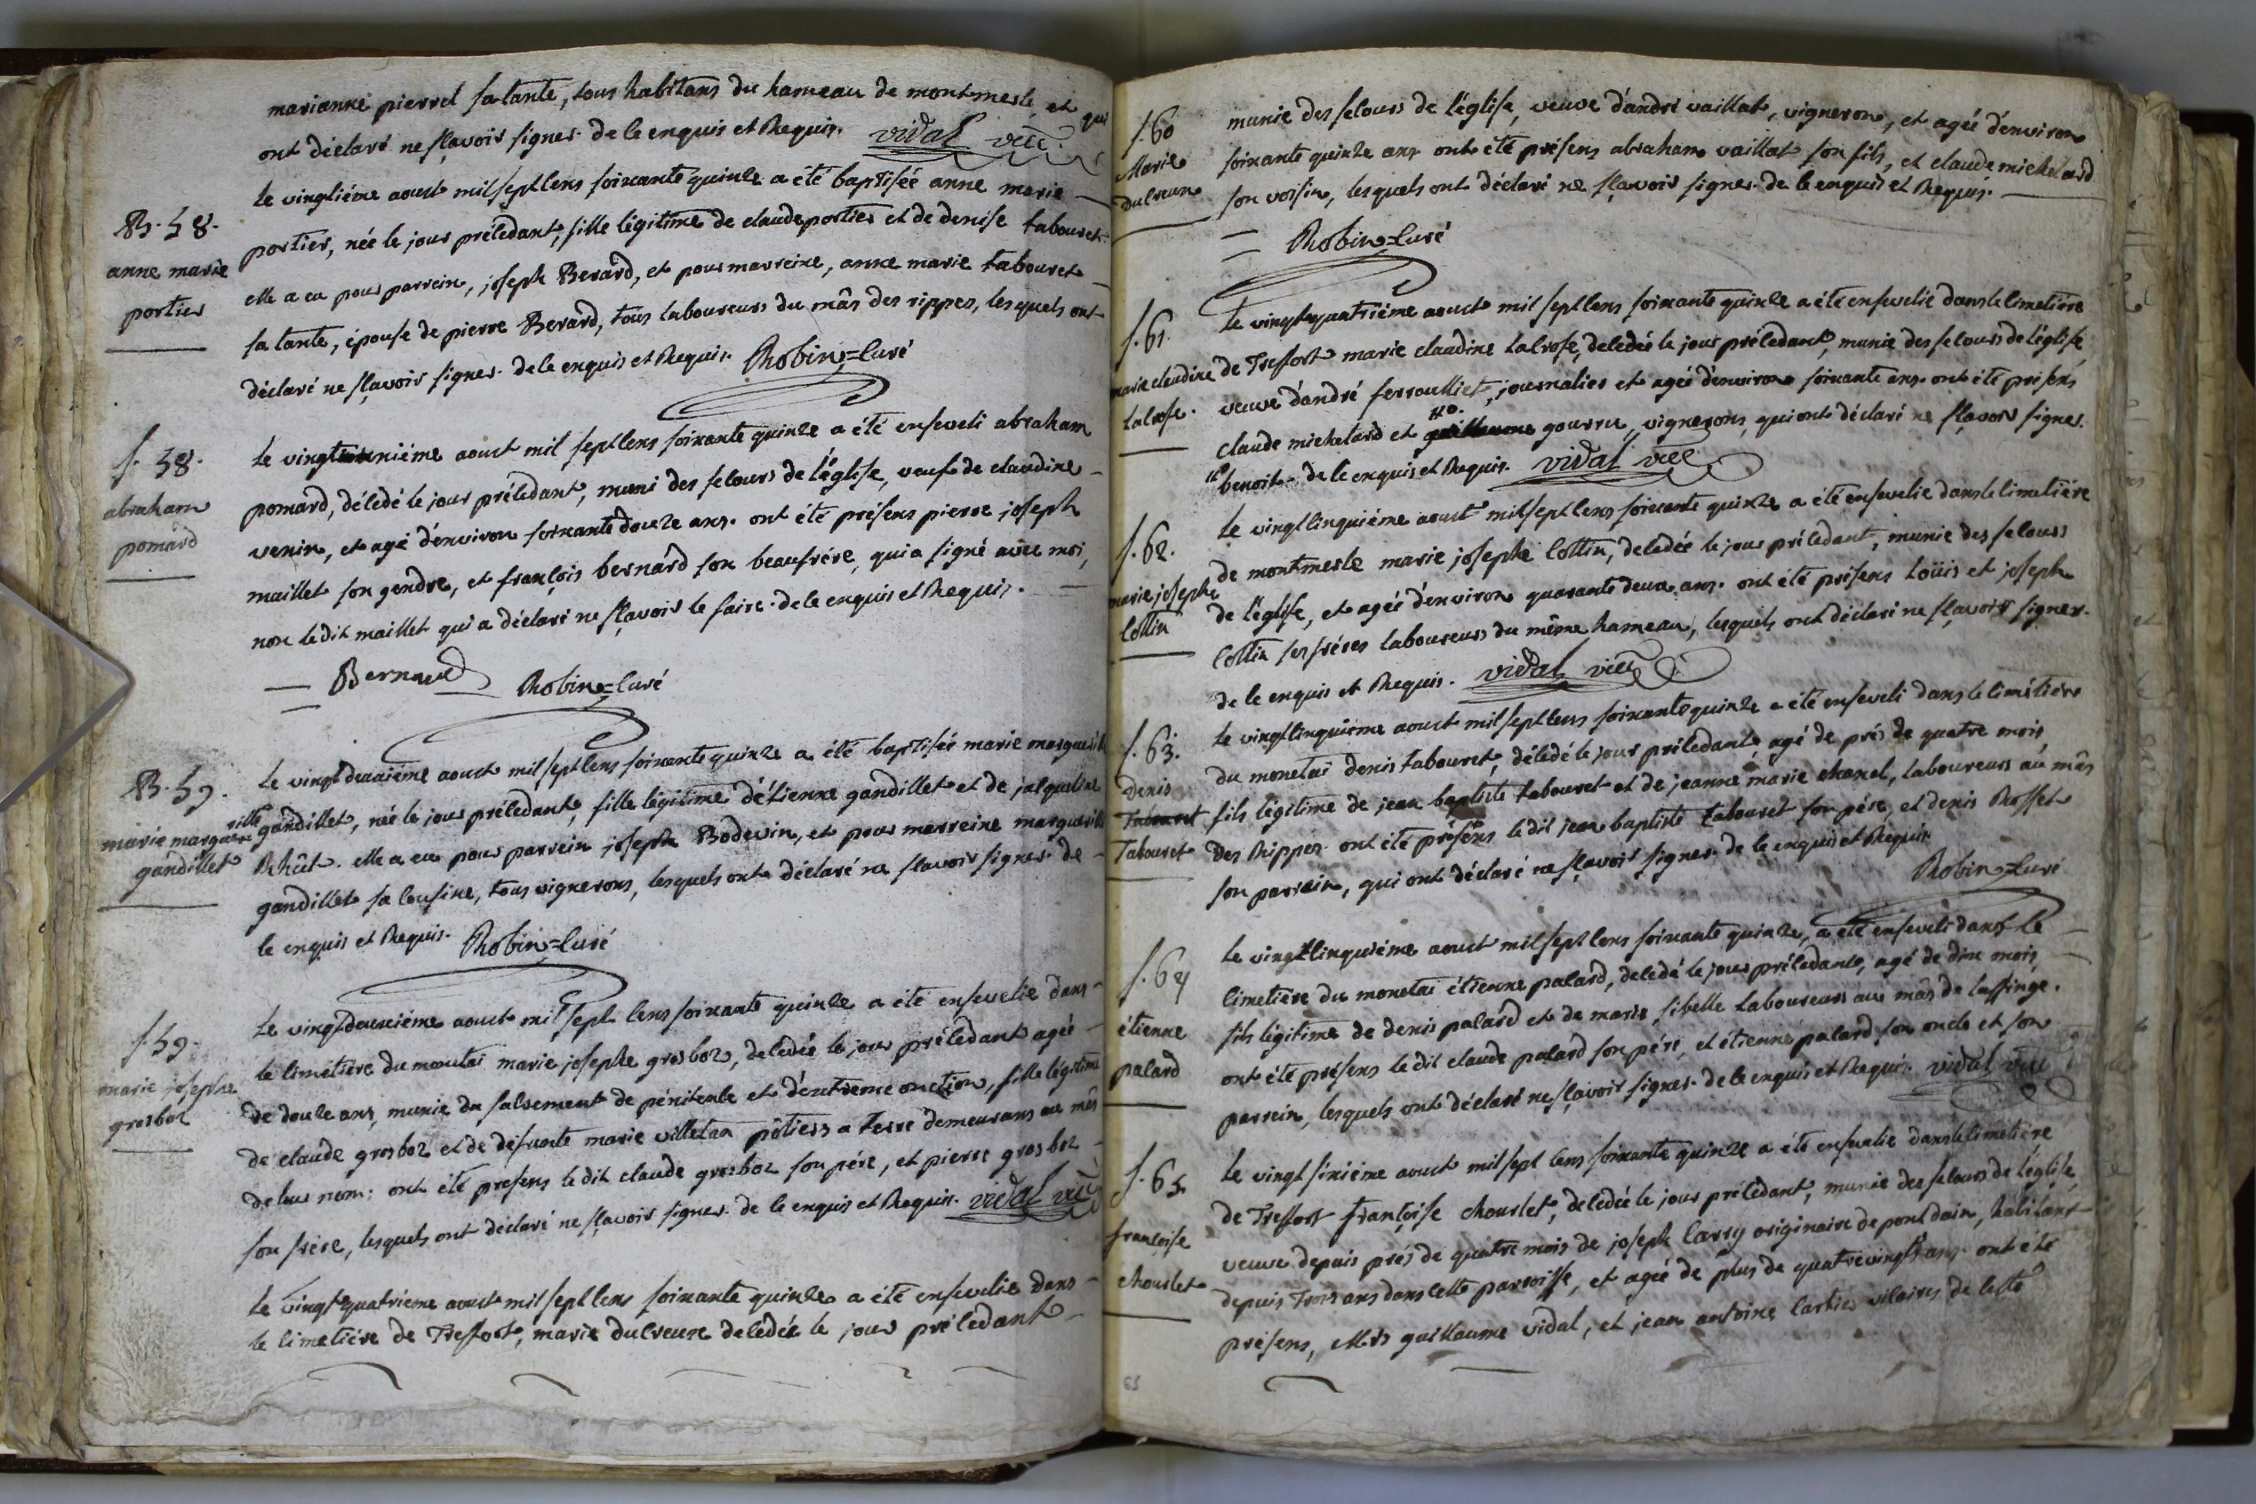 marianne pierrel sa tante, tous habitans du hameau de montmerle, et qui
ont déclaré ne sçavoir signer. de ce enquis et Requis. vidal vice.
B. 58.
anne marie
portier
Le vingtiéme aoust mil sept cens soixante quinze a été baptisée anne marie
portier, née le jour précedant, fille légitime de claude portier et de denise tabouret
elle a eu pour parrein, joseph Berard, et pour marreine, anne marie tabouret
sa tante, épouse de pierre Berard, tous laboureurs du mâs des rippes, lesquels ont
déclaré ne sçavoir signer. de ce enquis et Requis. Robin = Curé
S. 58.
abraham
pomard
Le vingt uniéme aoust mil sept cens soixante quinze a été enseveli abraham
pomard, décédé le jour précedant, muni des secours de l'église, veuf de claudine
venin, et agé d'environ soixante douze ans. ont été présens pierre joseph
maillet son gendre, et françois bernard son beaufrére, qui a signé avec moi,
non le dit maillet qui a déclaré ne sçavoir le faire. de ce enquis et Requis.
Bernard Robin = Curé
B. 59.
marie marguerille
gandillet
Le vingt deuxiéme aoust mil sept cens soixante quinze a été baptisée marie marguerille
gandillet, née le jour précedant, fille légitime d'étienne gandillet et de jacqueline
Rhût. elle a eu pour parrein joseph Bodevin, et pour marreine marguerille
gandillet sa cousine, tous vignerons, lesquels ont déclaré ne sçavoir signer. de
ce enquis et Requis. Robin = Curé
S. 59.
marie josephe
grosboz
Le vingt deuxiéme aoust mil sept cens soixante quinze a été ensevelie dans
le cimetiére du monetai marie josephe grosboz, decedée le jour précedant agée
de douze ans, munie du sacrement de pénitence et d'extreme onction, fille légitime
de claude grosboz et de defunte marie villetan pôtiers a terre demeurans au mâs
de leur nom: ont été presens le dit claude grosboz son pére, et pierre grosboz
son frére, lesquels ont déclaré ne sçavoir signer. de ce enquis et Requis. vidal vic
Le vingt quatrieme aoust mil sept cens soixante quinze a été ensevelie dans
le cimetiére de Treffort, marie ducreure decedée le jour précedant
S. 60
Marie
ducreure
munie des secours de l'église, veuve d'andré vaillat, vigneron, et agée d'environ
soixante quinze ans. ont été présens abraham vaillat son fils, et claude michelard
son voisin, lesquels ont déclaré ne sçavoir signer. de ce enquis et Requis.
Robin = Curé
S. 61.
marie claudine
Lacrose.
Le vingt quatriéme aoust mil sept cens soixante quinze a été ensevelie dans le cimetiére
de Treffort marie claudine Lacrose, decedée le jour précedant, munie des secours de l'église,
veuve d'andré ferroulliet, journalier et agée d'environ soixante ans. ont été présens
claude michelard et gourru, vignerons, qui ont déclaré ne sçavoir signer.
benoit. de ce enquis et Requis. vidal vice
S. 62.
marie josephe
Cottin
Le vingt cinquiéme aoust mil sept cens soixante quinze a été ensevelie dans le cimetiére
de montmerle marie josephe Cottin, decedée le jour précedant, munie des secours
de l'église, et agée d'environ quarante deux ans. ont été présens Loüis et joseph
Cottin ses fréres laboureurs du même hameau, lesquels ont déclaré ne sçavoir signer.
de ce enquis et Requis. vidal vice
S. 63.
Denis
Tabouret
Tabouret
Le vingt cinquiéme aoust mil sept cens soixante quinze a été enseveli dans le cimétiére
du monetai denis tabouret, décédé le jour précedant, agé de prés de quatre mois,
fils légitime de jean baptiste tabouret et de jeanne marie chanel, laboureurs au mâs
des Rippes. ont été présens le dit jean baptiste tabouret son pére, et denis Rosset
son parrein, qui ont déclaré ne sçavoir signer. de ce enquis et Requis.
Robin = Curé
S. 64
étienne
palard
Le vingt cinquiéme aoust mil sept cens soixante quinze, a été enseveli dans le
cimetiére du monetai étienne palard, decedé le jour précedant, agé de dix mois,
fils légitime de denis palard et de marie sibelle Laboureurs au mâs de laffinge.
ont été présens le dit claude palard son pére, et étienne palard son oncle et son
parrein, lesquels ont déclaré ne sçavoir signer. de ce enquis et Requis. vidal vice
S. 65
françoise
chourlet
Le vingt sixiéme aoust mil sept cens soixante quinze a été ensevelie dans le cimetiére
de Treffort françoise chourlet, decedée le jour précedant, munie des secours de l'église,
veuve depuis prés de quatre mois de joseph Carry originaire de pont dain, habitant
depuis trois ans dans cette parroisse, et agée de plus de quatrevingt ans. ont été
présens, Mrs guillaume vidal, et jean antoine Cartier vicaires de cette
65